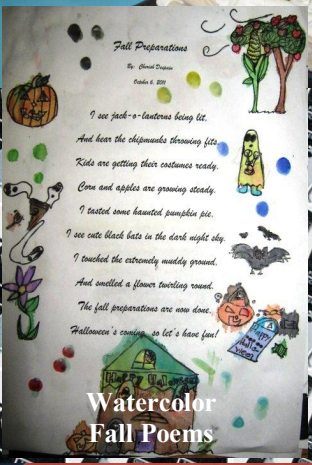 Fall Preparations
By: Cheriah Despain
October 6, 2011
I see jack-o-lanterns being lit.
And hear the chipmunks throwing fits.
Kids are getting their costumes ready.
Corn and apples are growing steady.
I tasted some haunted pumpkin pie.
I see cute black bats in the dark night sky.
I touched the extremely muddy ground.
And smelled a flower twirling round.
The fall preparations are now done.
Halloween's coming, so let's have fun!
Happy
Watercolor
Fall Poems